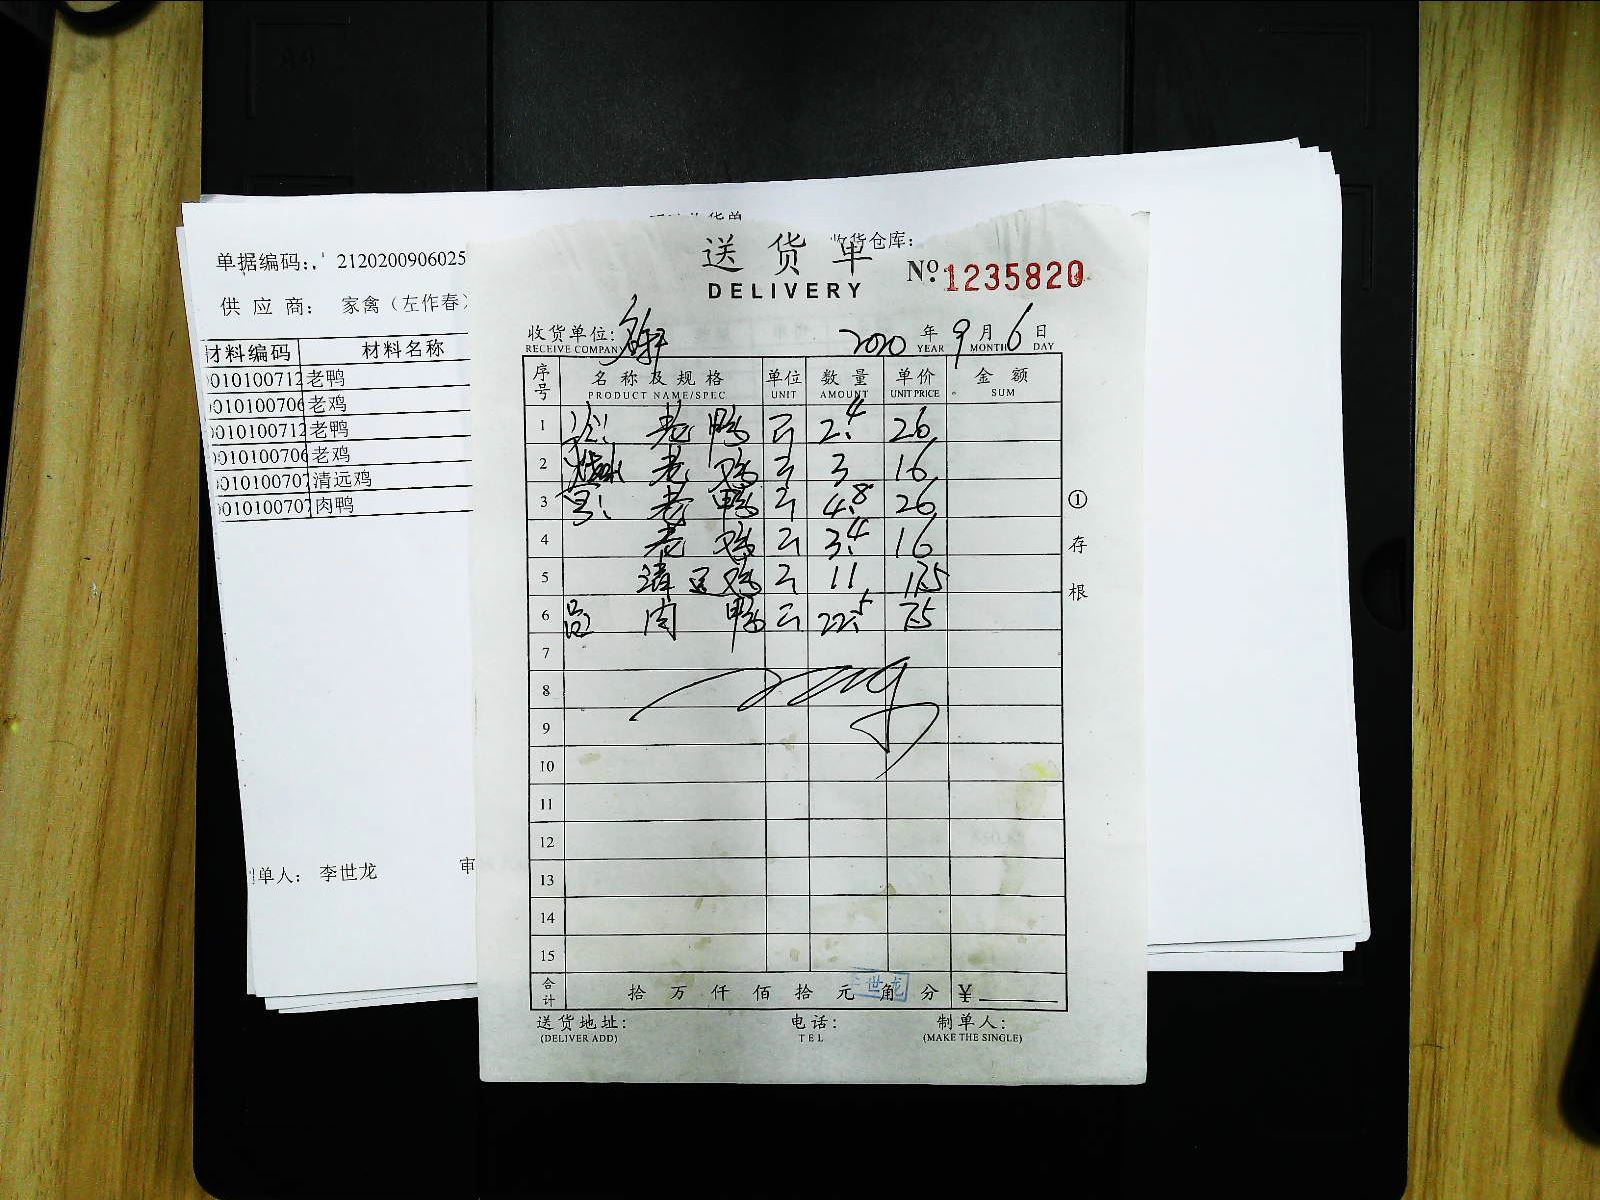 单据编码: 2120200906025
供 应 商: 家禽（左作春）
材料编码 材料名称
010100712 老鸭
010100706 老鸡
010100712 老鸭
010100706 老鸡
010100707 清远鸡
010100707 肉鸭
单人: 李世龙 审
收货仓库:
送 货 单
DELIVERY
No: 1235820
收货单位: 2020 年 9 月 6 日
RECEIVE COMPANY YEAR MONTH DAY
序号 名 称 及 规 格 单位 数 量 单价 金 额
PRODUCT NAME/SPEC UNIT AMOUNT UNIT PRICE SUM
1 老 鸭 2.4 26
2 老 鸡 3 16
3 老 鸭 4.8 26
4 老 鸡 3.4 16
5 清远鸡 11
6 肉 鸭 22.5 7.5
7
8
9
10
11
12
13
14
15
① 存 根
合计 拾 万 仟 佰 拾 元 角 分 ¥
世龙
送货地址: 电话: 制单人:
(DELIVER ADD) TEL (MAKE THE SINGLE)